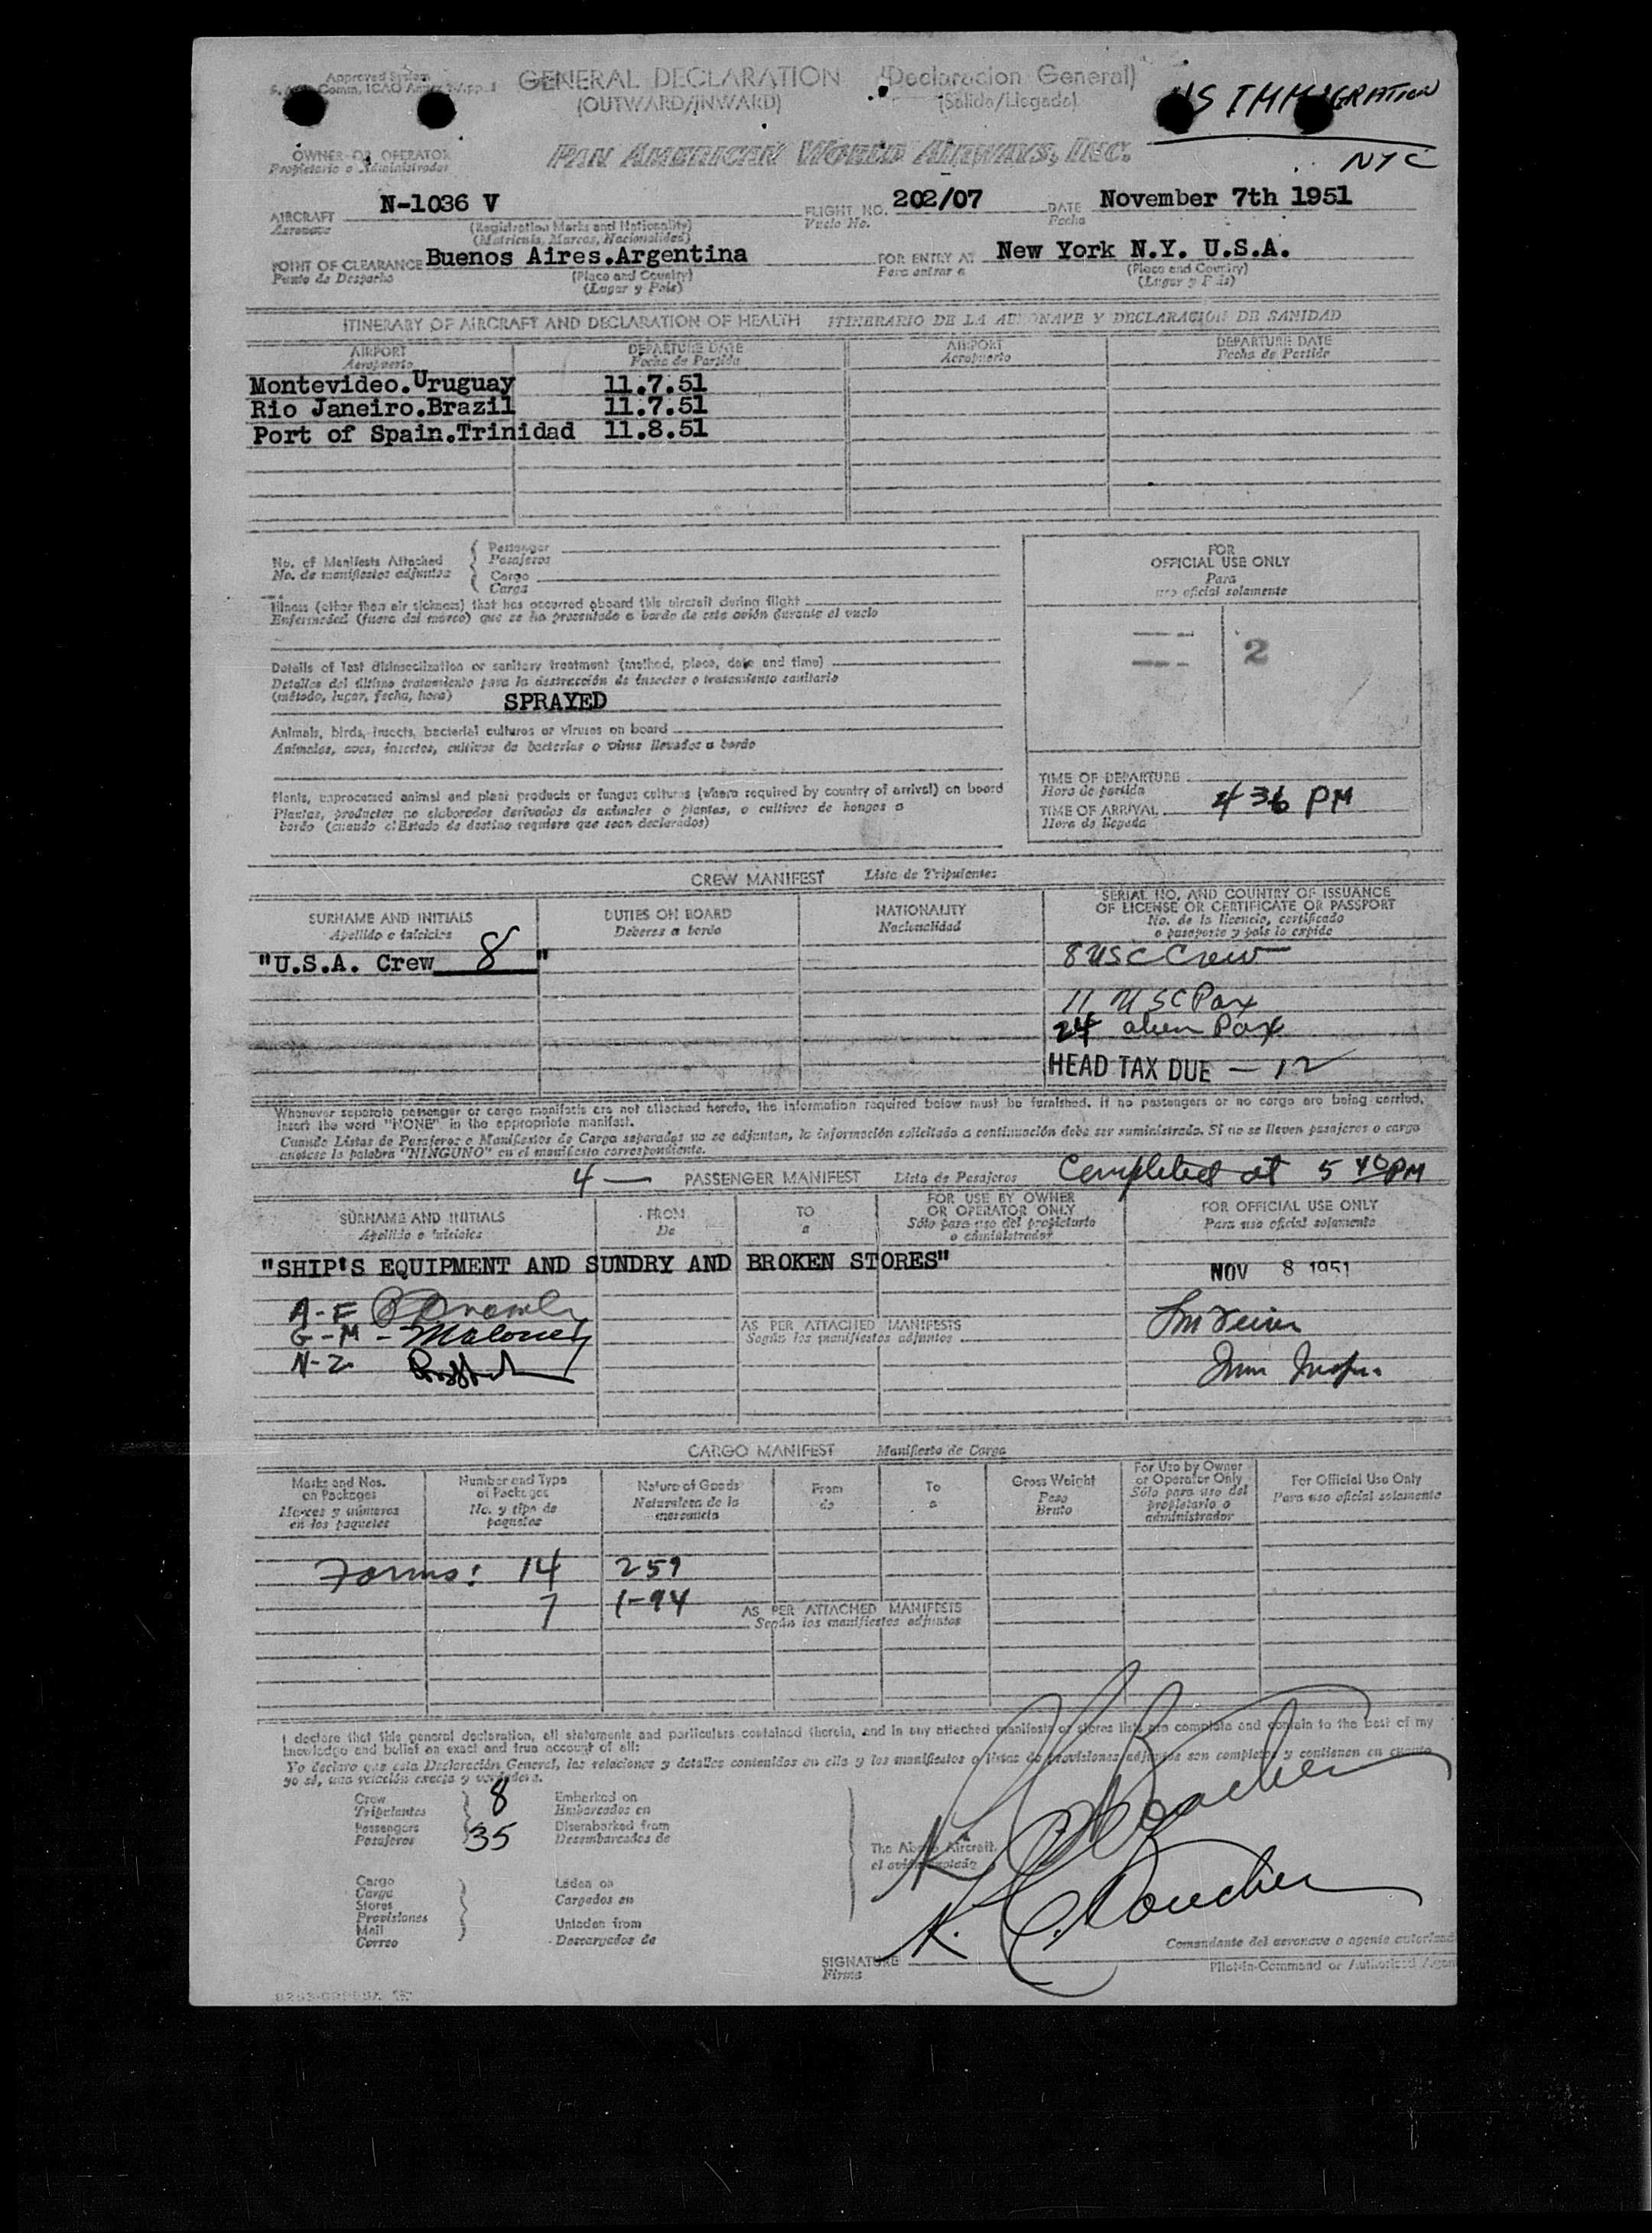 Approved System
GENERAL DECLARATION (Declaracion General)
(OUTWARD/INWARD) (Salida/Llegada)
US IMMIGRATION
NYC
OWNER OR OPERATOR
Propietario o Administrador
PAN AMERICAN WORLD AIRWAYS, INC.
AIRCRAFT N-1036 V FLIGHT NO. 202/07 DATE November 7th 1951
Aeronave (Registration Marks and Nationality) Vuelo No. Fecha
(Matricula, Marcas, Nacionalidad)
POINT OF CLEARANCE Buenos Aires.Argentina FOR ENTRY AT New York N.Y. U.S.A.
Punto de Despacho (Place and Country) Para entrar a (Place and Country)
(Lugar y País) (Lugar y País)
ITINERARY OF AIRCRAFT AND DECLARATION OF HEALTH ITINERARIO DE LA AERONAVE Y DECLARACION DE SANIDAD
AIRPORT DEPARTURE DATE AIRPORT DEPARTURE DATE
Aeropuerto Fecha de Partida Aeropuerto Fecha de Partida
Montevideo.Uruguay 11.7.51
Rio Janeiro.Brazil 11.7.51
Port of Spain.Trinidad 11.8.51
No. of Manifests Attached
No. de manifiestos adjuntos
Passenger
Pasajeros
Cargo
Carga
FOR
OFFICIAL USE ONLY
Para
uso oficial solamente
2
Illness (other than air sickness) that has occurred aboard this aircraft during flight
Enfermedad (fuera del mareo) que se ha presentado a bordo de este avión durante el vuelo
Details of last disinsectization or sanitary treatment (method, place, date and time)
Detalles del último tratamiento para la destrucción de insectos o tratamiento sanitario
(método, lugar, fecha, hora) SPRAYED
Animals, birds, insects, bacterial cultures or viruses on board
Animales, aves, insectos, cultivos de bacterias o virus llevados a bordo
Plants, unprocessed animal and plant products or fungus cultures (where required by country of arrival) on board
Plantas, productos no elaborados derivados de animales o plantas, o cultivos de hongos a
bordo (cuando el Estado de destino requiere que sean declarados)
TIME OF DEPARTURE
Hora de partida
TIME OF ARRIVAL 4 36 PM
Hora de llegada
CREW MANIFEST Lista de Tripulantes
SURNAME AND INITIALS DUTIES ON BOARD NATIONALITY SERIAL NO. AND COUNTRY OF ISSUANCE
OF LICENSE OR CERTIFICATE OR PASSPORT
Apellido e iniciales Deberes a bordo Nacionalidad No. de la licencia, certificado
o pasaporte y país lo expide
"U.S.A. Crew 8 " 8 USC Crew
11 USC Pax
24 alien Pax
HEAD TAX DUE — 12
Whenever separate passenger or cargo manifests are not attached hereto, the information required below must be furnished. If no passengers or no cargo are being carried,
insert the word "NONE" in the appropriate manifest.
Cuando Listas de Pasajeros o Manifiestos de Carga separados no se adjuntan, la información solicitada a continuación debe ser suministrada. Si no se llevan pasajeros o cargo
anótese la palabra "NINGUNO" en el manifiesto correspondiente.
4 — PASSENGER MANIFEST Lista de Pasajeros Completed at 5 40 PM
SURNAME AND INITIALS FROM TO FOR USE BY OWNER
OR OPERATOR ONLY FOR OFFICIAL USE ONLY
Apellido e iniciales De a Sólo para uso del propietario
o administrador Para uso oficial solamente
"SHIP'S EQUIPMENT AND SUNDRY AND BROKEN STORES" NOV 8 1951
A-F
G-M - Maloney
N-Z
AS PER ATTACHED MANIFESTS
Según los manifiestos adjuntos
CARGO MANIFEST Manifiesto de Carga
Marks and Nos.
on Packages
Marcas y números
en los paquetes
Number and Type
of Packages
No. y tipo de
paquetes
Nature of Goods
Naturaleza de la
mercancía
From
de
To
a
Gross Weight
Peso
Bruto
For Use by Owner
or Operator Only
Sólo para uso del
propietario o
administrador
For Official Use Only
Para uso oficial solamente
Forms: 14 259
7 1-94
AS PER ATTACHED MANIFESTS
Según los manifiestos adjuntos
I declare that this general declaration, all statements and particulars contained therein, and in any attached manifests or stores lists are complete and contain to the best of my
knowledge and belief an exact and true account of all:
Yo declaro que esta Declaración General, las relaciones y detalles contenidos en ella y los manifiestos o listas de provisiones adjuntos son completos y contienen en cuanto
yo sé, una relación exacta y verdadera.
Crew 8 Embarked on
Tripulantes Embarcados en
Passengers 35 Disembarked from
Pasajeros Desembarcados de
The Above Aircraft
el avión
Cargo Laden on
Carga Cargados en
Stores
Provisiones Unladen from
Mail Descargados de
Correo
SIGNATURE
Firma
Comandante del aeronave o agente autorizado
Pilot-in-Command or Authorized Agent